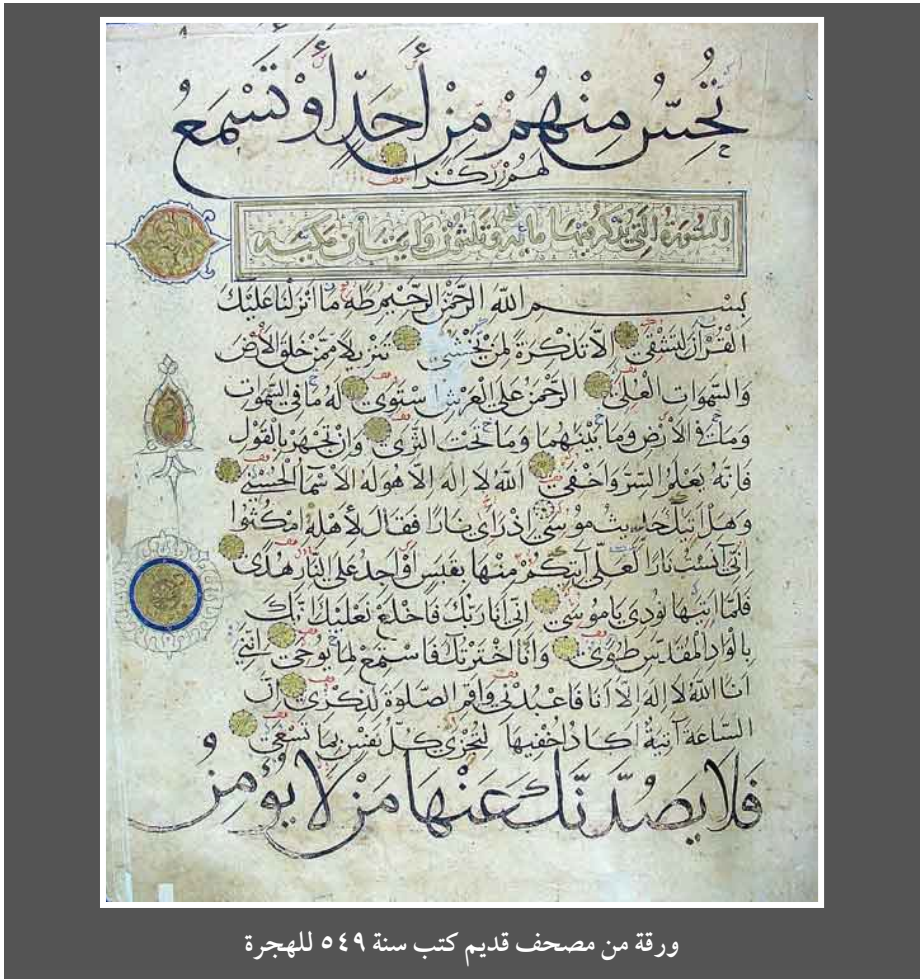 تُحِسُّ مِنْهُمْ مِنْ أَحَدٍ أَوْ تَسْمَعُ
لَهُمْ رِكْزًا
السورة التي يذكر فيها طه مائة وثلثون وايتان مكية
بِسْمِ اللهِ الرَّحْمٰنِ الرَّحِيْمِ طٰهٰ مَا اَنْزَلْنَا عَلَيْكَ
الْقُرْآنَ لِتَشْقٰى اِلَّا تَذْكِرَةً لِمَنْ يَخْشٰى تَنْزِيلًا مِمَّنْ خَلَقَ الْاَرْضَ
وَالسَّمٰوَاتِ الْعُلٰى الرَّحْمٰنُ عَلَى الْعَرْشِ اسْتَوٰى لَهُ مَا فِى السَّمٰوَاتِ
وَمَا فِى الْاَرْضِ وَمَا بَيْنَهُمَا وَمَا تَحْتَ الثَّرٰى وَاِنْ تَجْهَرْ بِالْقَوْلِ
فَاِنَّهُ يَعْلَمُ السِّرَّ وَاَخْفٰى اَللهُ لَا اِلٰهَ اِلَّا هُوَ لَهُ الْاَسْمَآءُ الْحُسْنٰى
وَهَلْ اَتٰيكَ حَدِيثُ مُوسٰى اِذْ رَاٰى نَارًا فَقَالَ لِاَهْلِهِ امْكُثُوا
اِنِّى آنَسْتُ نَارًا لَعَلِّى آتِيكُمْ مِنْهَا بِقَبَسٍ اَوْ اَجِدُ عَلَى النَّارِ هُدًى
فَلَمَّا اَتٰيهَا نُودِىَ يَا مُوسٰى اِنِّى اَنَا رَبُّكَ فَاخْلَعْ نَعْلَيْكَ اِنَّكَ
بِالْوَادِ الْمُقَدَّسِ طُوًى وَاَنَا اخْتَرْتُكَ فَاسْتَمِعْ لِمَا يُوحٰى اِنَّنِى
اَنَا اللهُ لَا اِلٰهَ اِلَّا اَنَا فَاعْبُدْنِى وَاَقِمِ الصَّلٰوةَ لِذِكْرِى اِنَّ
السَّاعَةَ آتِيَةٌ اَكَادُ اُخْفِيهَا لِتُجْزٰى كُلُّ نَفْسٍ بِمَا تَسْعٰى
فَلَا يَصُدَّنَّكَ عَنْهَا مَنْ لَا يُؤْمِنُ
ورقة من مصحف قديم كتب سنة ٥٤٩ للهجرة